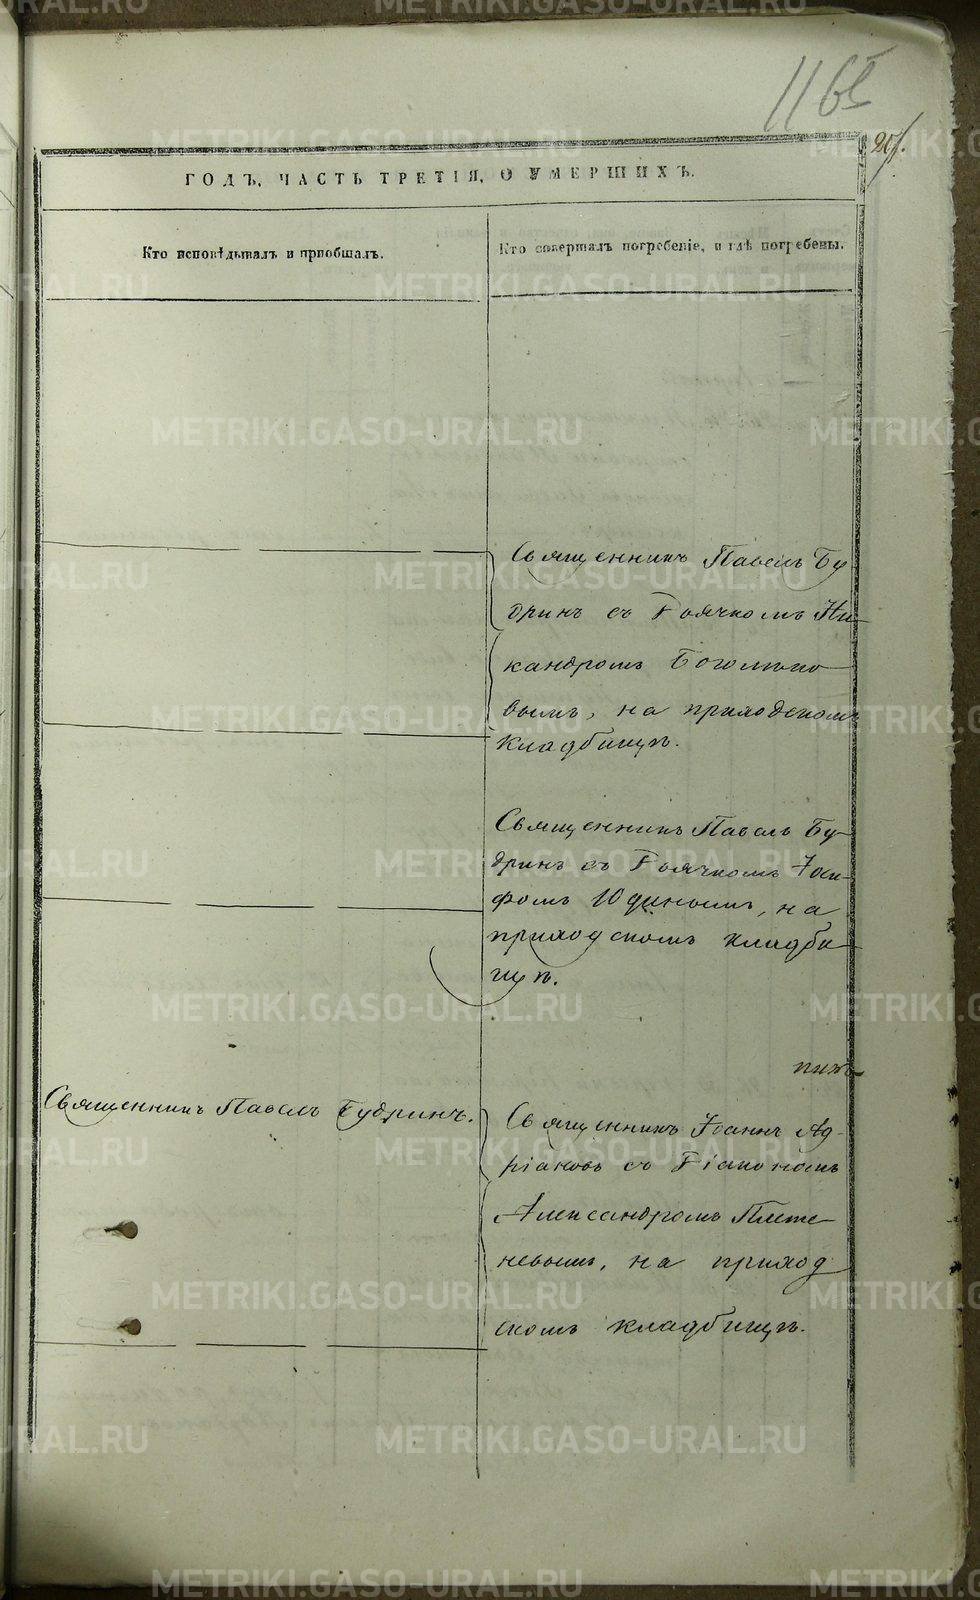 1165
207.
ГОДЪ, ЧАСТЬ ТРЕТІЯ, О УМЕРШИХЪ.
Кто исповѣдывалъ и пріобщалъ.
Кто совершалъ погребеніе, и гдѣ погребены.
Священникъ Павелъ Бу
дринъ съ Дьячкомъ Ни
кандромъ Боголѣпо
вымъ, на приходскомъ
кладбищѣ.
Священникъ Павелъ Бу-
дринъ съ Дьячкомъ Іоси-
фомъ Юдинымъ, на
приходскомъ кладби-
щѣ.
Священникъ Павелъ Будринъ.
Священникъ Іоаннъ Ад-
ріановъ съ Діакономъ
Александромъ Плете-
невымъ, на приход
скомъ кладбищѣ.
METRIKI.GASO-URAL.RU